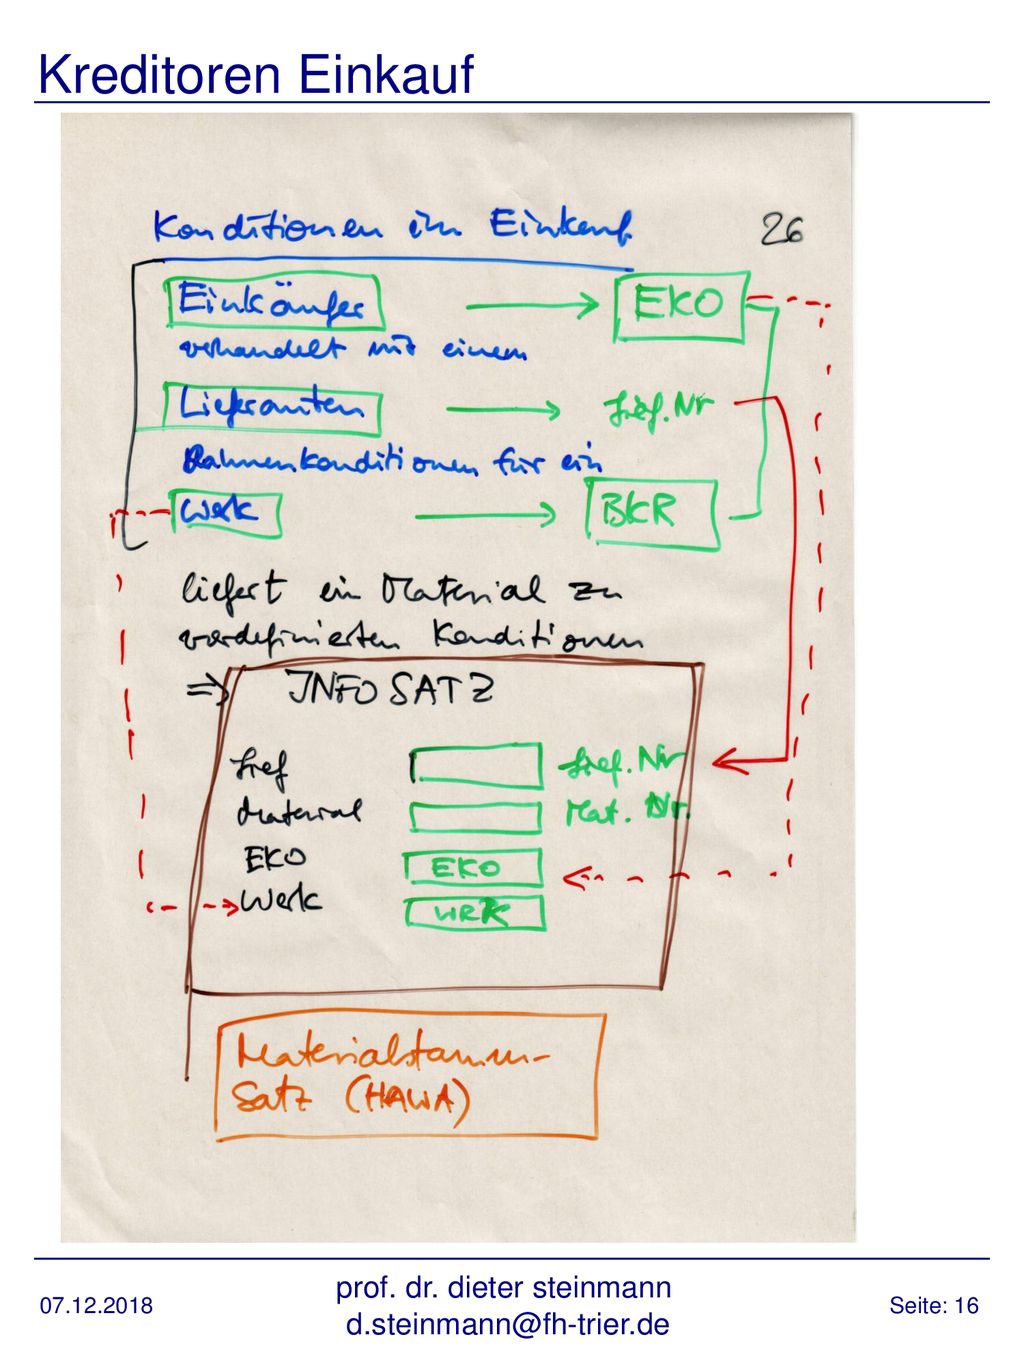 Kreditoren Einkauf
Konditionen im Einkauf 26
Einkäufer EKO
verhandelt mit einem
Lieferanten Lief.Nr
Rahmenkonditionen für ein
Werk BKR
liefert ein Material zu
vordefinierten Konditionen
=> INFOSATZ
Lief Lief.Nr
Material Mat. Nr.
EKO EKO
Werk WRK
Materialstamm-
Satz (HAWA)
prof. dr. dieter steinmann
07.12.2018 Seite: 16
d.steinmann@fh-trier.de